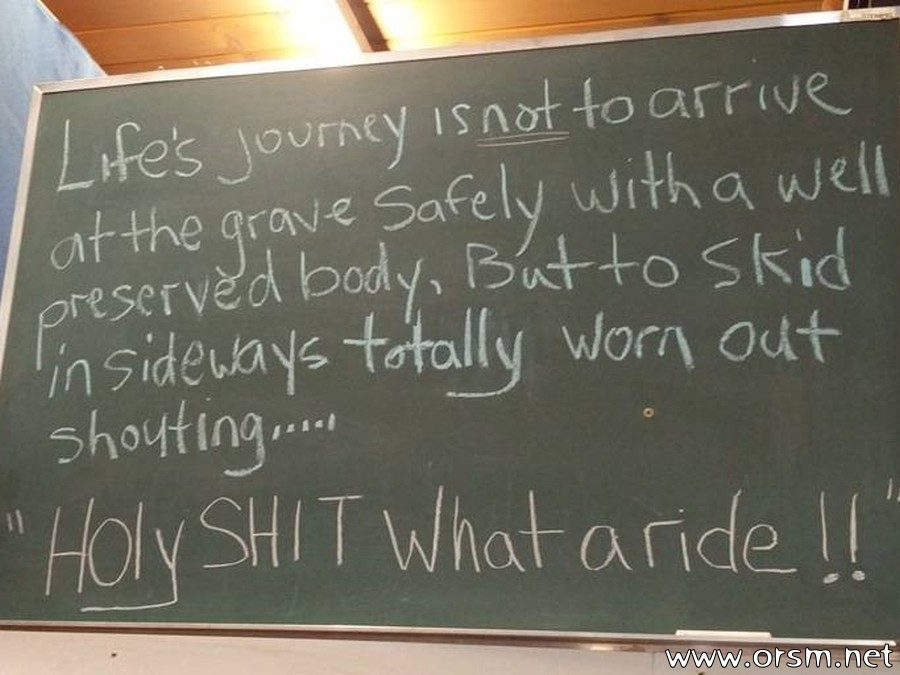 Life's journey is not to arrive
at the grave safely with a well
preserved body, But to skid
in sideways totally worn out
shouting.....
"Holy SHIT What a ride!!"
www.orsm.net